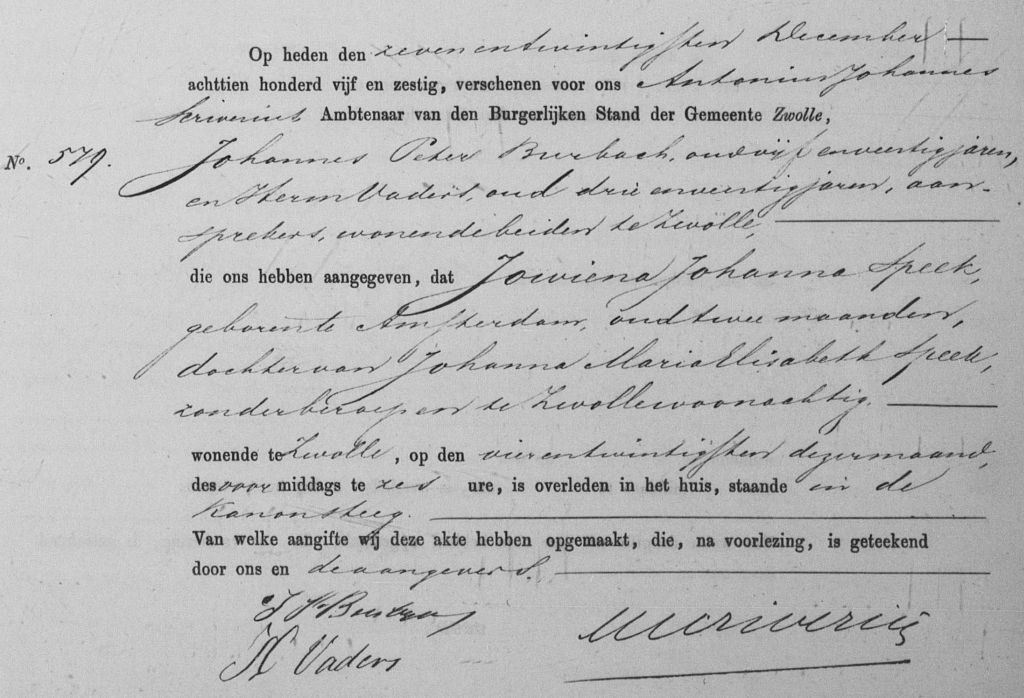 Op heden den zevenentwintigsten December
achttien honderd vijf en zestig, verschenen voor ons Antonius Johannes
Scriverius Ambtenaar van den Burgerlijken Stand der Gemeente Zwolle,
No. 579. Johannes Peter Burbach, oud vijf en veertig jaren,
en Herm Vaders, oud drie en veertig jaren, aan-
sprekers, wonende beiden te Zwolle,
die ons hebben aangegeven, dat Jowiena Johanna Speek,
geboren te Amsterdam, oud twee maanden,
dochter van Johanna Maria Elisabeth Speek,
zonder beroep en te Zwolle woonachtig.
wonende te Zwolle, op den vierentwintigsten dezer maand,
des voor middags te zes ure, is overleden in het huis, staande in de
Kanonsteeg.
Van welke aangifte wij deze akte hebben opgemaakt, die, na voorlezing, is geteekend
door ons en de aangevers.
H Vaders
Scriverius